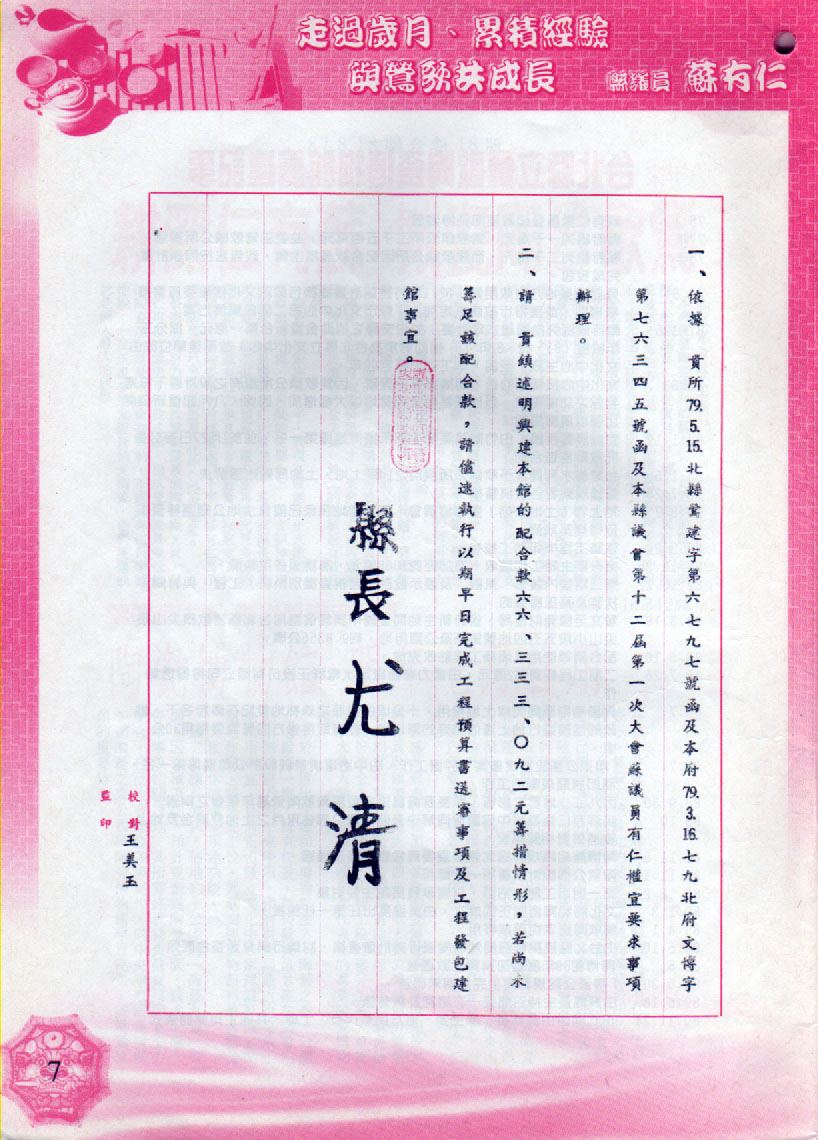 走過歲月、累積經驗
與鶯歌共成長
縣議員 蘇有仁
一、依據 貴所79.5.15.北縣鶯建字第六七九七號函及本府79.3.16.七九北府文博字
第七六三四五號函及本縣議會第十二屆第一次大會蘇議員有仁權宜要求事項
辦理。
二、請 貴鎮述明興建本館的配合款六六、三三三、〇九二元籌措情形,若尚未
籌足該配合款,請儘速執行以期早日完成工程預算書送審事項及工程發包建
館事宜。
縣長尤清
校對王美玉
監印
7